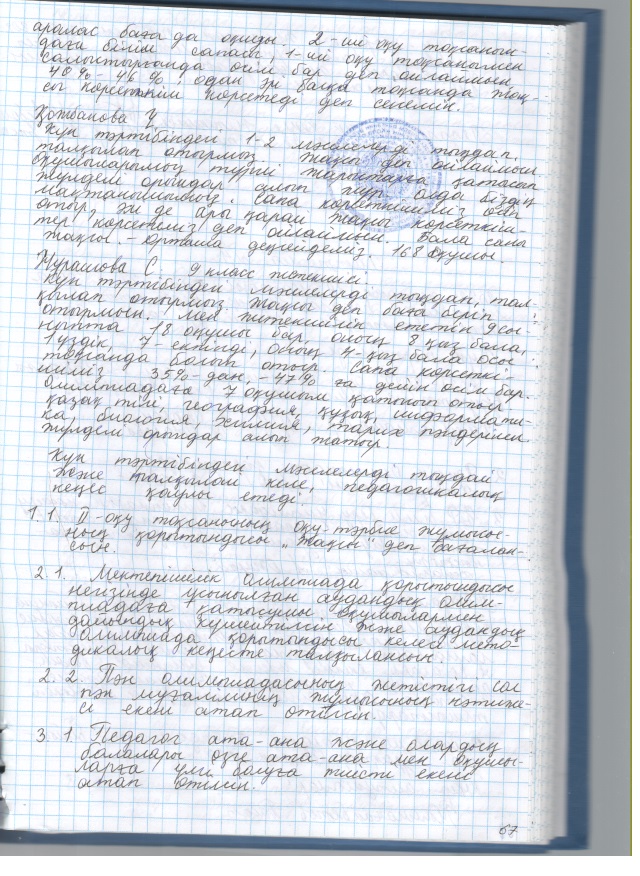 аралас баға да оқиды. 2-ші оқу тоқсанын-
дағы білім сапасы, 1-ші оқу тоқсанымен
салыстырғанда өсім бар деп ойлаймын
40% - 46%, одан әрі басқа тоқсанда жақ-
сы көрсеткіш көрсетеді деп сенемін.
Қожбанова У
Күн тәртібіндегі 1-2 мәселелерді тыңдап,
талқылап отырмыз. Жақсы деп ойлаймын
Оқушыларымыз түрлі жарыстарға қатысып
жүлделі орындар алып жүр, олда біздің
мақтанышымыз. Сапа көрсеткішіміз өсіп
отыр, әлі де ары қарай жақсы көрсеткіш-
тер көрсетеміз деп ойлаймын. Бала саны
жақсы. - орташа деңгейдеміз. 168 оқушы.
Нурашова С 9 класс жетекшісі.
Күн тәртібіндегі мәселелерді тыңдап, тал-
қылап отырмыз жақсы деп баға беріп
отырмын. Мен жетекшілік ететін 9 сы-
ныпта 18 оқушы бар, оның 8 қыз бала,
1 үздік, 7-екпінді, оның 4-қыз бала осы
тоқсанда болып отыр. Сапа көрсеткі-
шіміз 35%-дан, -47% ға дейін өсім бар.
Олимпиадаға 7 оқушым қатысып отыр
қазақ тілі, география, құқық, информати-
ка, биология, химия, тарих пәндерінен.
жүлделі орындар алып жатыр.
Күн тәртібіндегі мәселелерді тыңдай
және талқылай келе, педагогикалық
кеңес қаулы етеді
1.1. II-оқу тоқсанының оқу-тәрбие жұмысы-
ның қорытындысы „жақсы" деп бағалан-
сын.
2.1. Мектепішілік олимпиада қорытындысы
негізінде ұсынылған аудандық олим-
пиадаға қатысушы оқушылармен
дайындық күшейтілсін және аудандық
олимпиада қорытындысы келесі мето-
дикалық кеңесте талқылансын.
2.2. Пән олимпиадасының жетістігі сол
пән мұғалімінің жұмысының нәтиже-
сі екені атап өтілсін.
3.1. Педагог ата-ана және олардың
балалары өзге ата-ана мен оқушы-
ларға үлгі болуға тиісті екені
атап өтілсін.
67